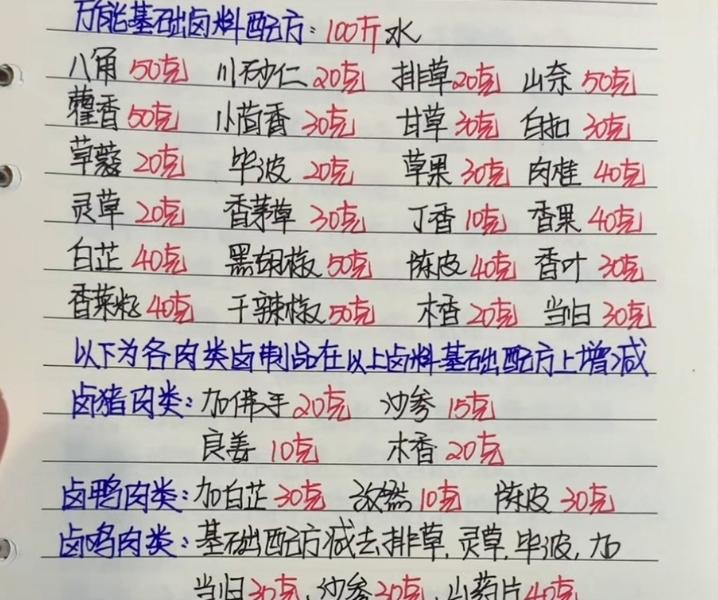 万能基础卤料配方:100斤水
八角50克 川砂仁20克 排草20克 山奈50克
藿香50克 小茴香30克 甘草30克 白扣30克
草蔻20克 毕波20克 草果30克 肉桂40克
灵草20克 香茅草30克 丁香10克 香果40克
白芷40克 黑胡椒50克 陈皮40克 香叶30克
香菜籽40克 干辣椒50克 木香20克 当归30克
以下为各肉类卤制品在以上卤料基础配方上增减
卤猪肉类:加佛手20克 沙参15克
良姜10克 木香20克
卤鸭肉类:加白芷30克 孜然10克 陈皮30克
卤鸡肉类:基础配方减去排草,灵草,毕波,加
当归30克,沙参30克,山药片40克